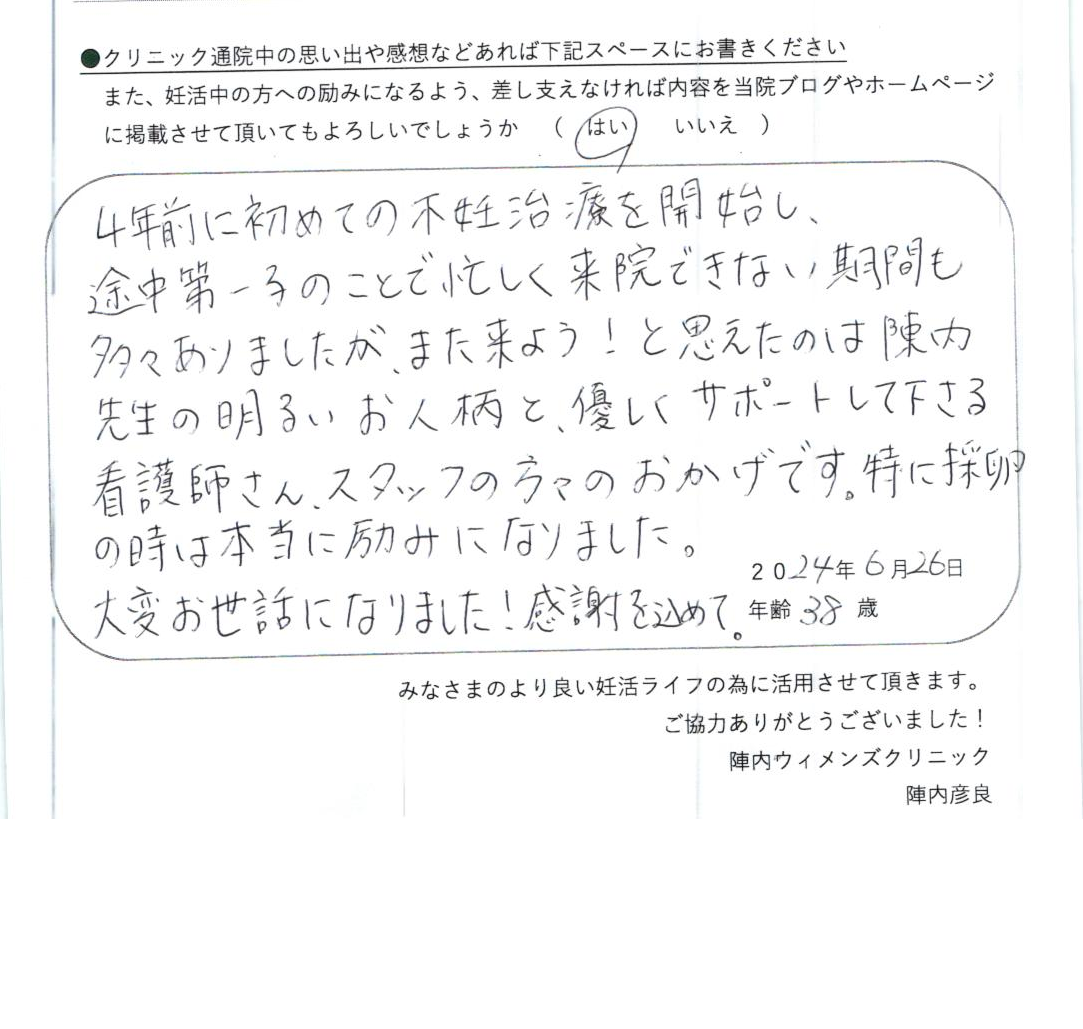 ●クリニック通院中の思い出や感想などあれば下記スペースにお書きください
また、妊活中の方への励みになるよう、差し支えなければ内容を当院ブログやホームページ
に掲載させて頂いてもよろしいでしょうか （ はい いいえ ）
4年前に初めての不妊治療を開始し、
途中第一子のことで忙しく来院できない期間も
多々ありましたが、また来よう！と思えたのは陳内
先生の明るいお人柄と、優しくサポートして下さる
看護師さん、スタッフの方々のおかげです。特に採卵
の時は本当に励みになりました。
大変お世話になりました！感謝を込めて。
2024年6月26日
年齢 38 歳
みなさまのより良い妊活ライフの為に活用させて頂きます。
ご協力ありがとうございました！
陣内ウィメンズクリニック
陣内彦良